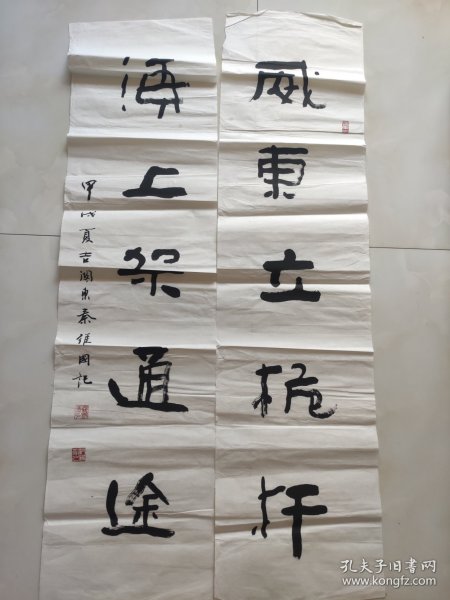 威東立桅杆
海上架通途
甲戌夏吉闽東秦维国记
孔夫子旧书网
www.kongfz.com